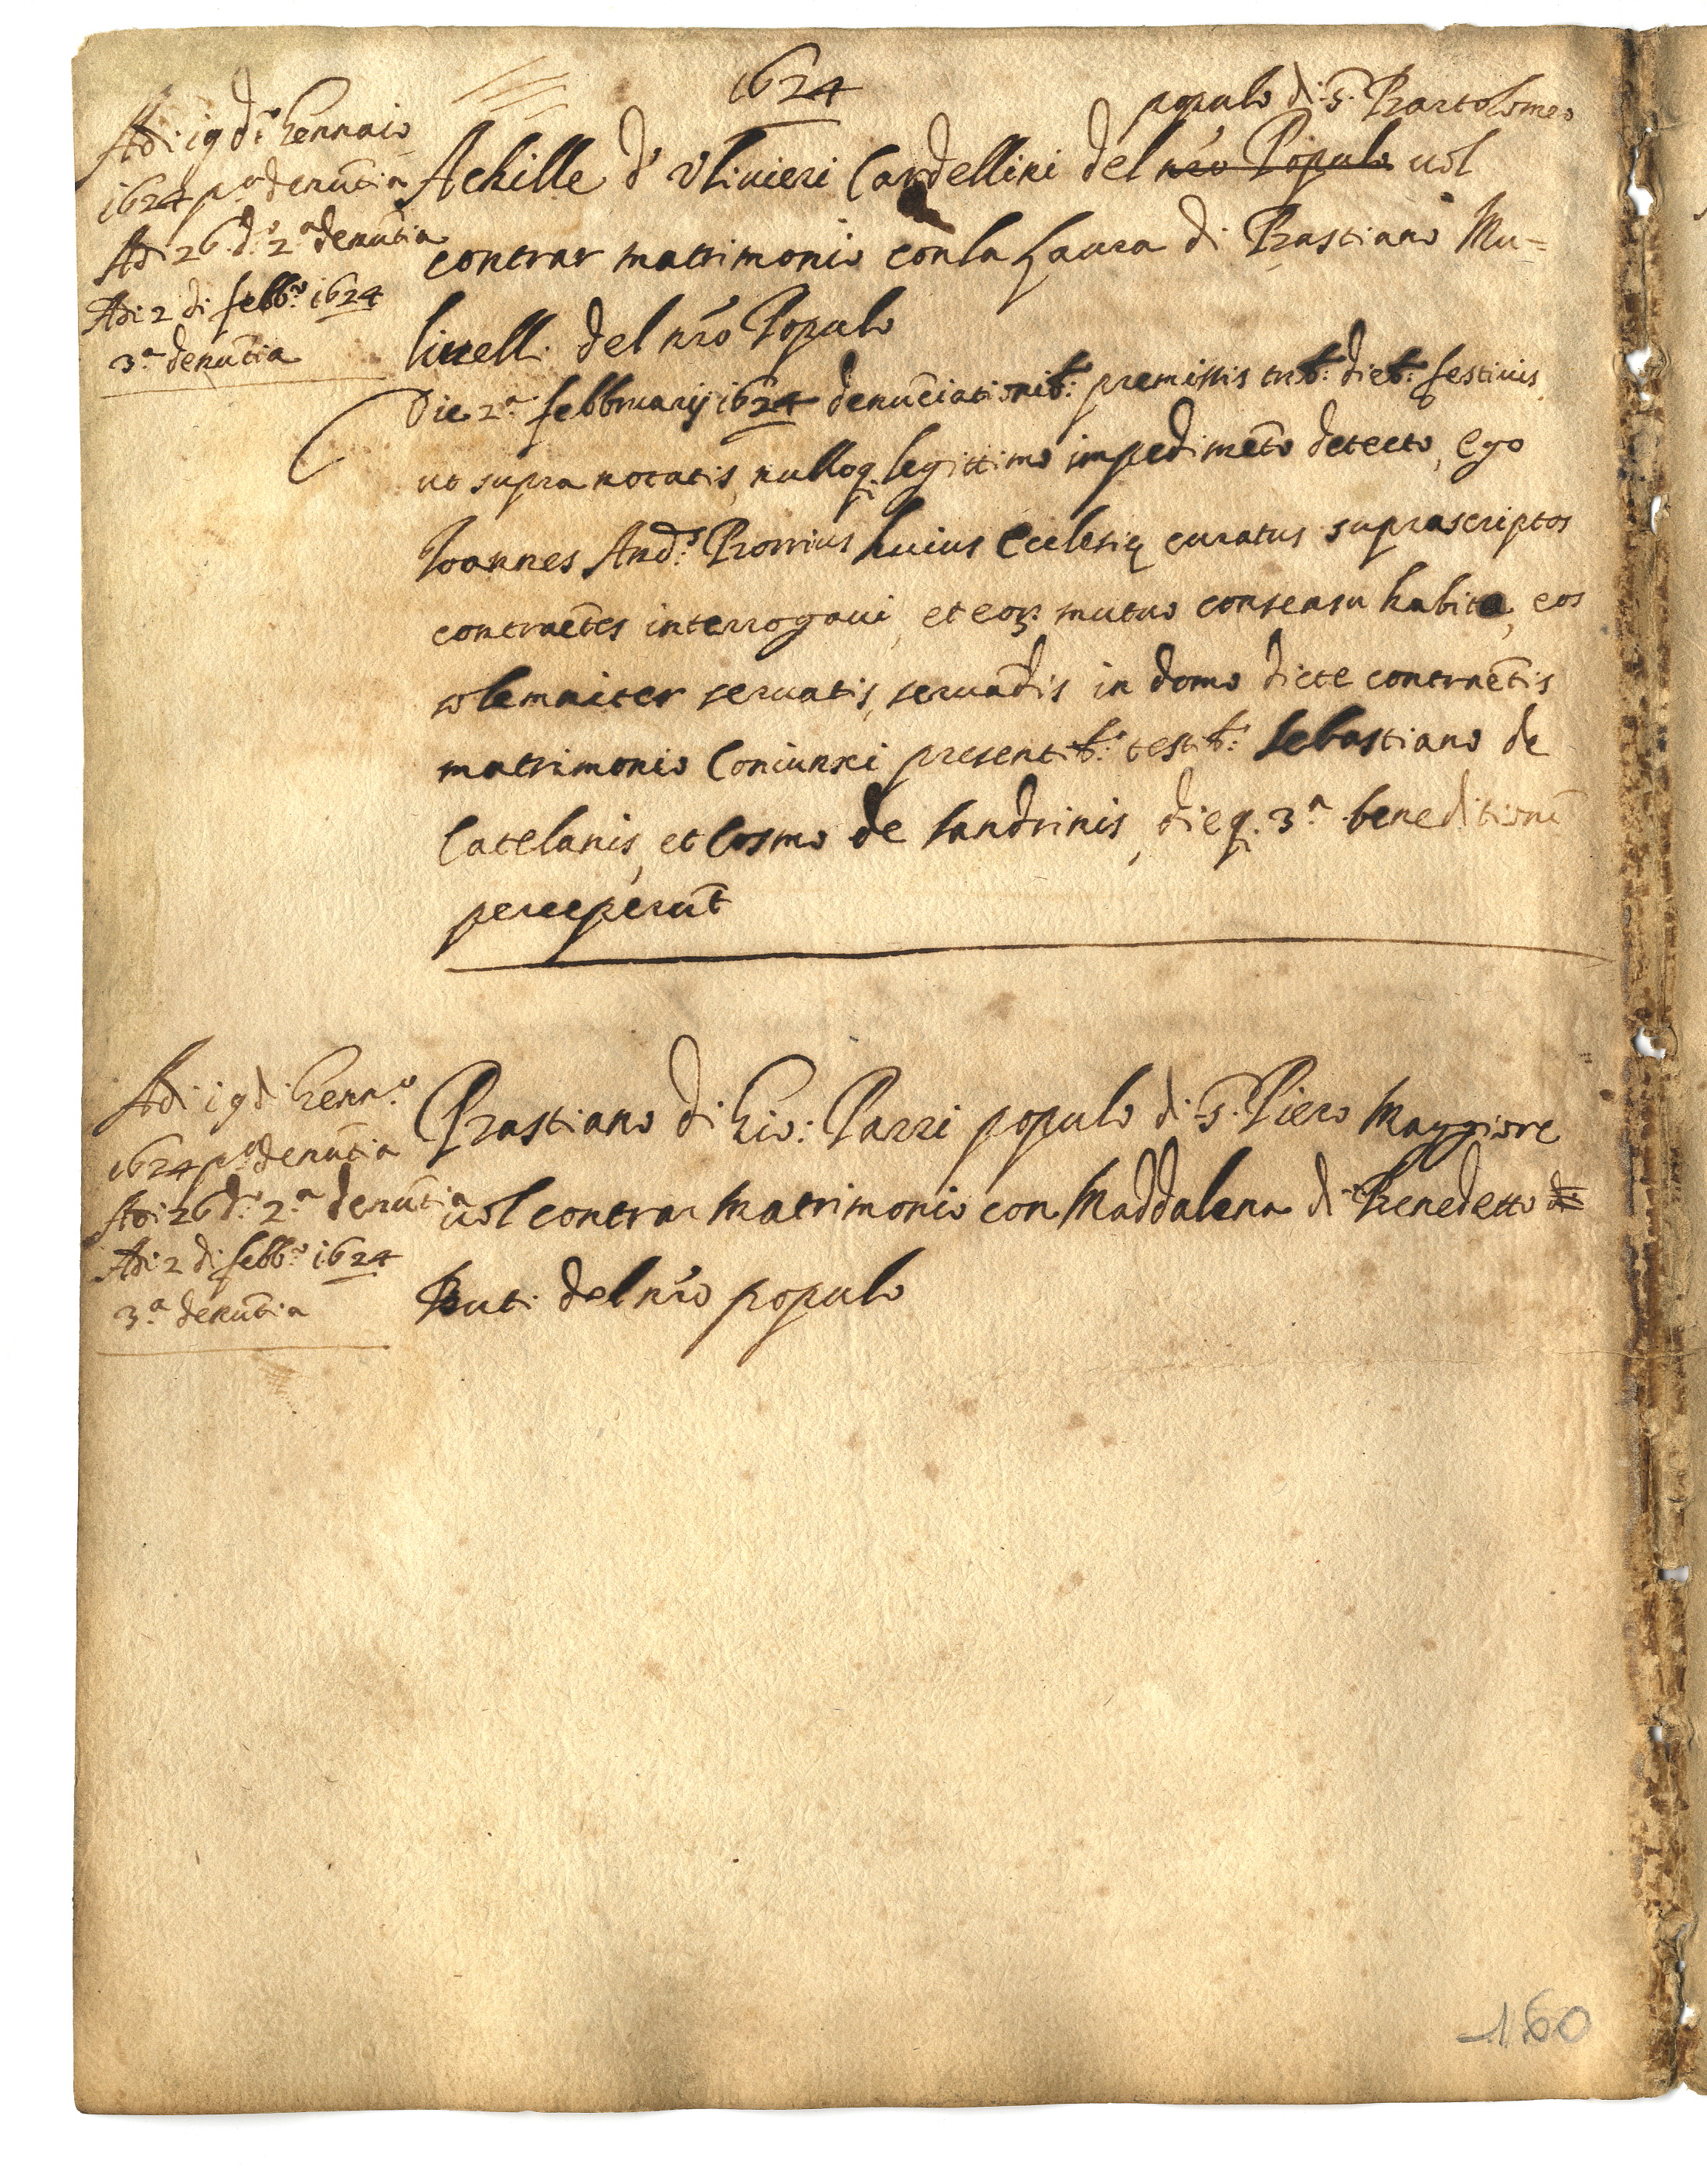 1624
populo di S. Bartolomeo
Adi 19 di Gennaio
1624 pa denūtia
Adi 26 di 2.a denūtia
Adi 2 di febb.o 1624
3.a denūtia
Achille d'Ulivieri Cardellini del nro Popolo vol
contrar matrimonio con la Laura di Bastiano Mu=
linell. del nro Populo
Die 2.a febbruarij 1624 denūciationib: premissis trib: dieb: festivis
ut supra notatis, nulloq. legittimo impedimēto detecto, Ego
Joannes And.s huius Ecclesię curatus suprascriptos
contraētes interrogavi, et eoz. mutuo consensu habito, eos
solemniter servatis, servādis in domo dicte contraētis
matrimonio Coniunxi presentib: testib: Sebastiano de
Catelanis, et Cosmo de Sandrinis, dieq. 3.a beneditionē
perceperūt
Adi 19 di Genn.o
1624 pa denūtia
Adi 26 di 2.a denūtia
Adi 2 di febb.o 1624
3.a denūtia
Bastiano di Gio: Parri populo di S. Piero Maggiore
vol contrar Matrimonio con Maddalena di Benedetto di
Buti del nro populo
160